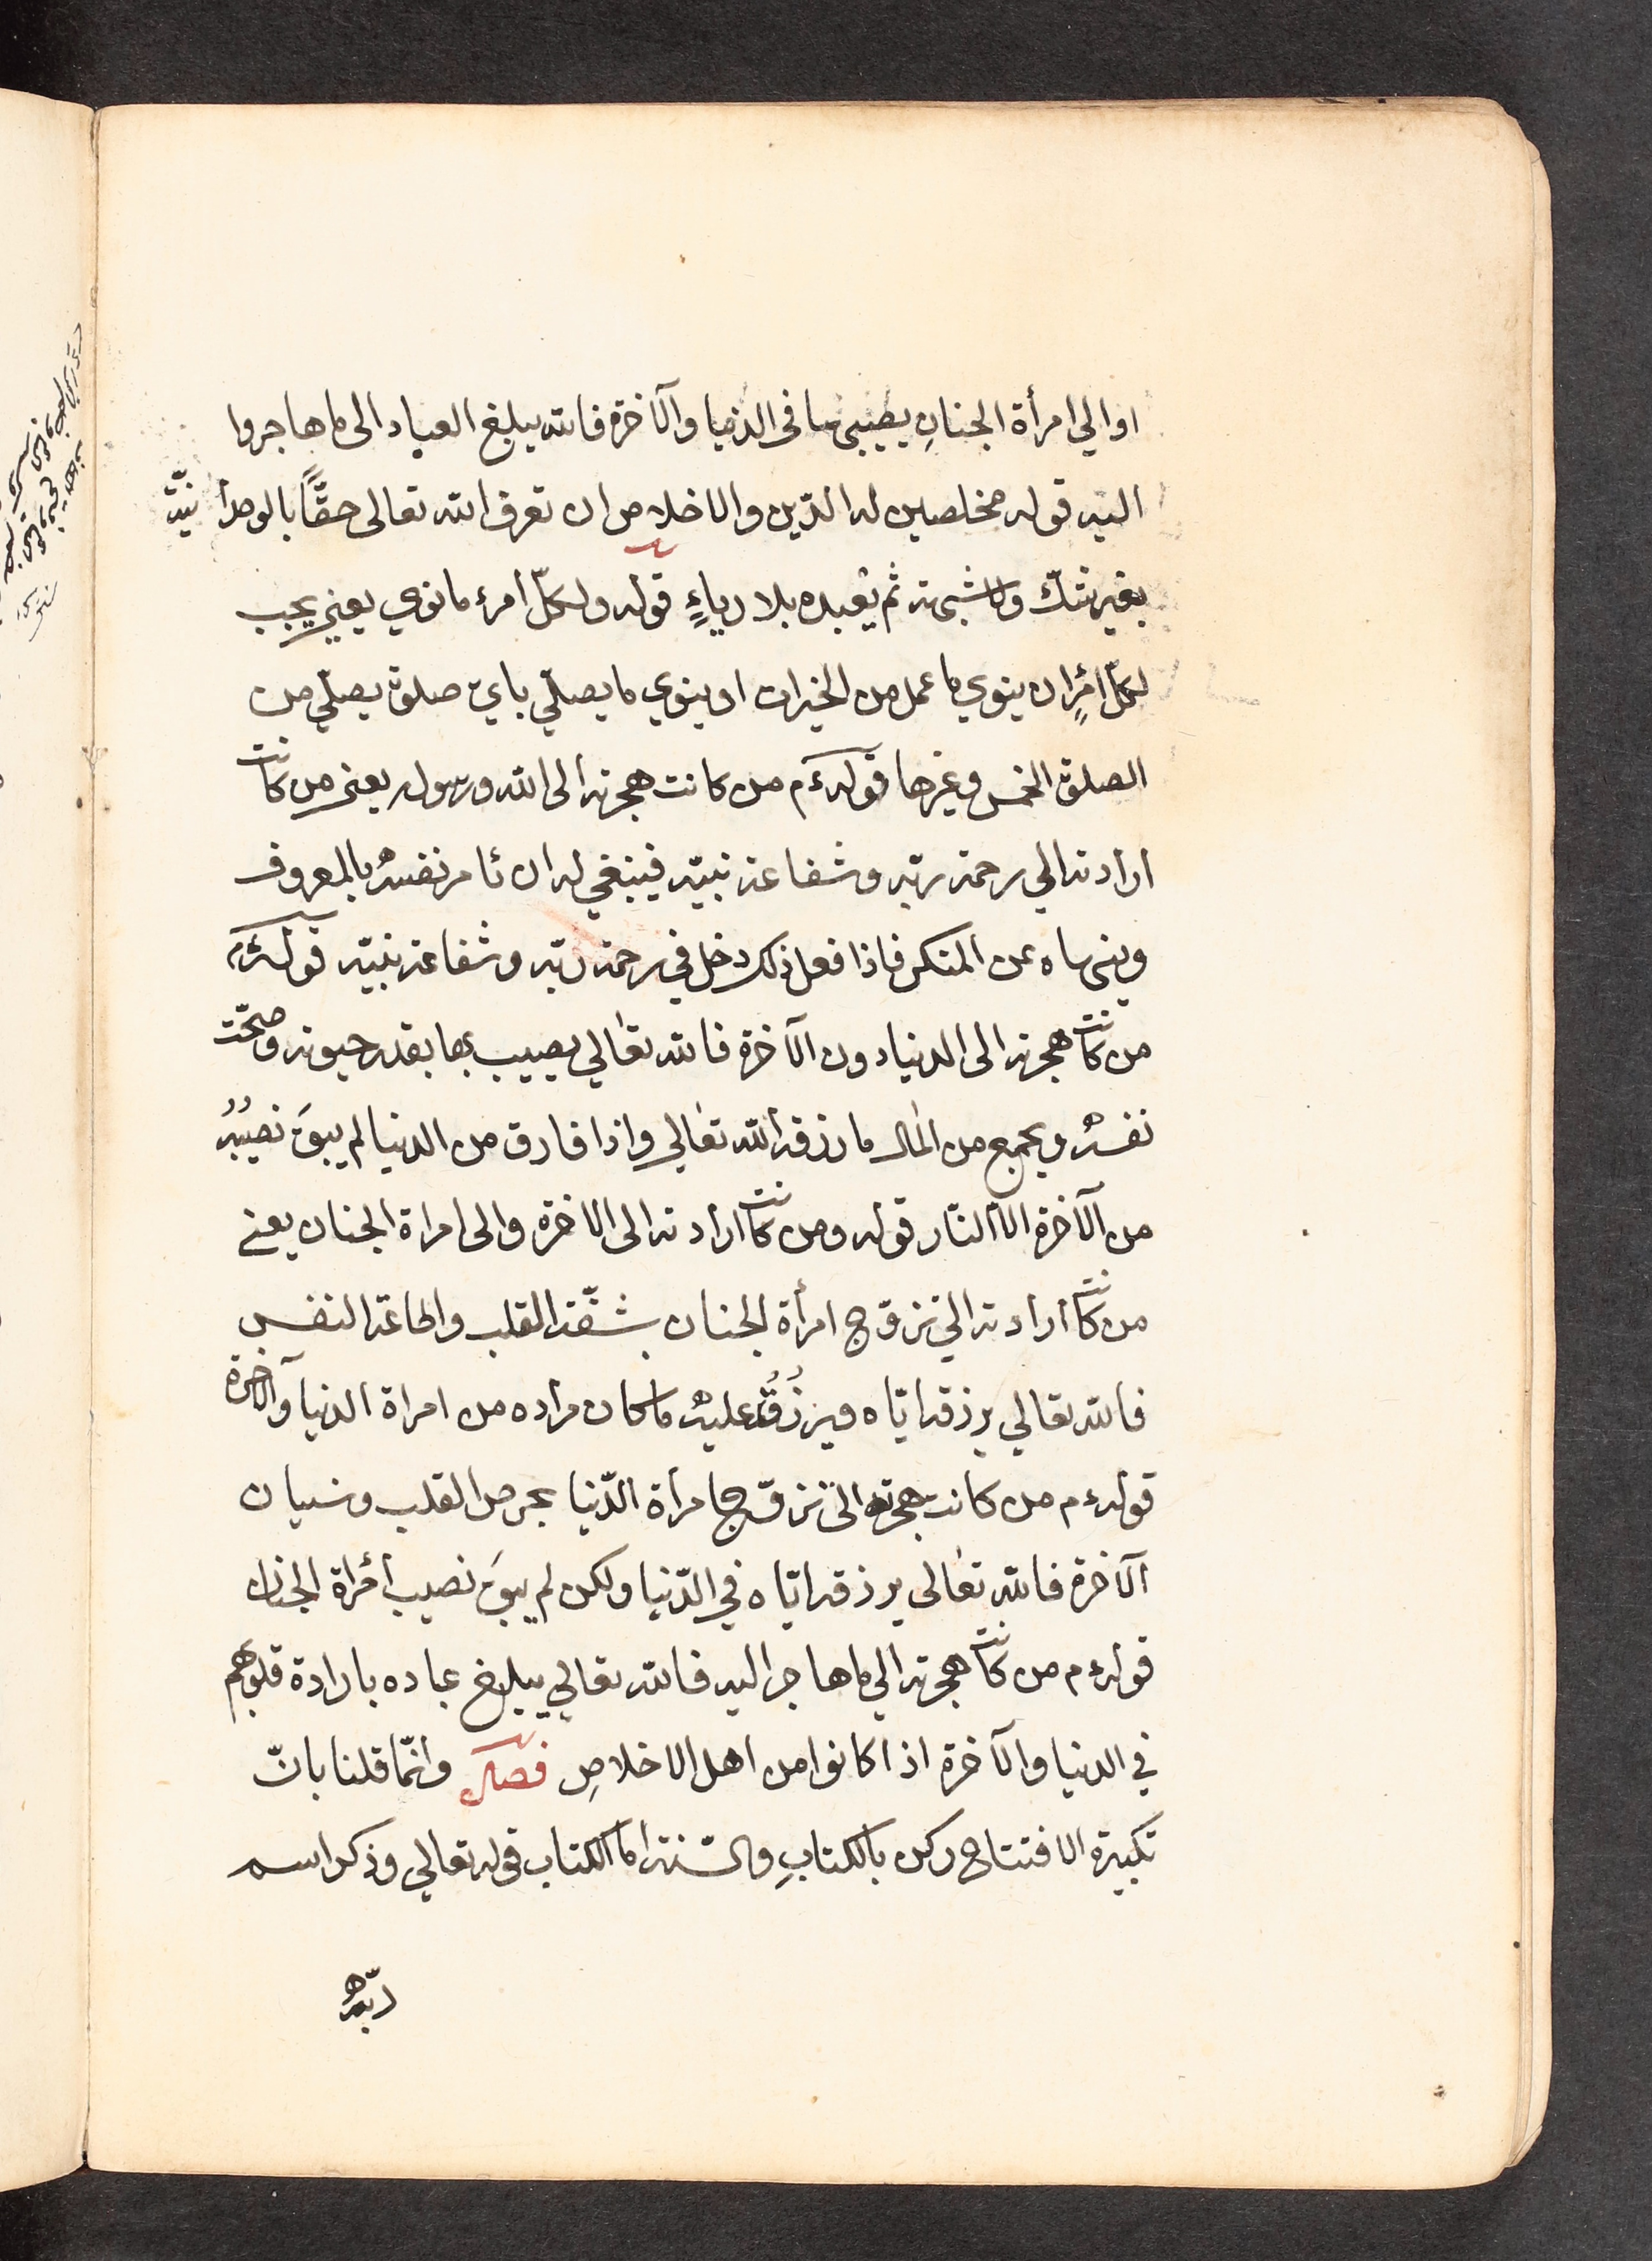 او الي امرأة الجنانِ يصيبها في الدنيا والآخرة فالله يبلغ العباد الى ما هاجروا
اليه قوله مخلصين له الدّين والاخلاص ان تعرف الله تعالى حقّاً بالوحدانيّة
بغير شكّ ولا شبهة ثم يعبده بلا رياءٍ قوله ولكلّ امرء ما نوي يعني يجب
لكلّ امرٍء ان ينوي ما عمل من الخيرات او ينوي ما يصلّي باي صلوة يصلّي من
الصلوة الخمس وغيرها قوله ءم من كانت هجرته الى الله ورسوله يعني من كانت
ارادته الي رحمة ربّه وشفاعة نبيّه فينبغي له ان تامر نفسه بالمعروف
وينهاه عن المنكر فاذا فعل ذلك دخل في رحمة ربّه وشفاعة نبيّه قوله ءم
من كانت هجرته الى الدنيا دون الآخرة فالله تعالي يصيب بها بقدر حيوته وصحّت
نفسه ويجمع من المال ما رزقه الله تعالي واذا فارق من الدنيا لم يبقَ نصيبُه
من الآخرة الا النّار قوله ومن كانت ارادته الى الاخرة والى امراة الجنان يعني
من كانت ارادته الي تزوّج امرأة الجنان بشقّة القلب واطاعة النفس
فالله تعالي يرزقه ايّاه ويرزُقُه عليه ما كان مراده من امراة الدنيا والآخرة
قوله ءم من كانت هجرته الى تزوّج امرأة الدّنيا بحرص القلب ونسيان
الآخرة فالله تعالى يرزقه ايّاه في الدّنيا ولكن لم يبقَ نصيب امرأة الجنان
قوله ءم من كانت هجرته الي ما هاجر اليه فالله تعالي يبلغ عباده بارادة قلوبهم
في الدنيا والآخرة اذا كانوا من اهل الاخلاصِ فصل وانّما قلنا بانّ
تكبيرة الافتتاح ركن بالكتابِ والسّنة اما الكتاب قوله تعالي وذكر اسم
ربّه